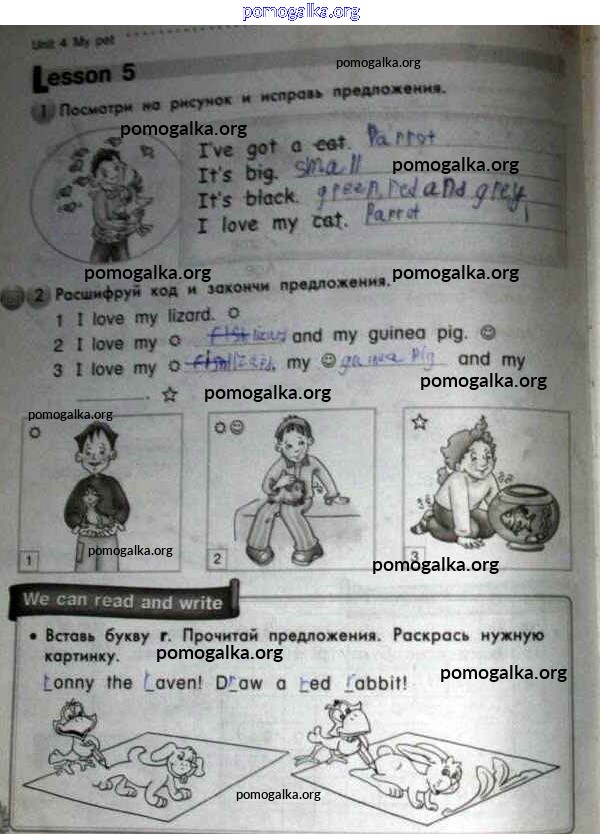 pomogalka.org
Unit 4 My pet
Lesson 5
pomogalka.org
1 Посмотри на рисунок и исправь предложения.
pomogalka.org
I've got a cat. Parrot
It's big. small
pomogalka.org
It's black. green, red and grey
I love my cat. Parrot
pomogalka.org pomogalka.org
2 Расшифруй код и закончи предложения.
1 I love my lizard.
2 I love my fish lizard and my guinea pig.
3 I love my fish lizard, my guinea pig and my
pomogalka.org
pomogalka.org
.
pomogalka.org
pomogalka.org
1
2
3
pomogalka.org
We can read and write
• Вставь букву r. Прочитай предложения. Раскрась нужную
картинку.
pomogalka.org
pomogalka.org
ronny the raven! Draw a red rabbit!
pomogalka.org